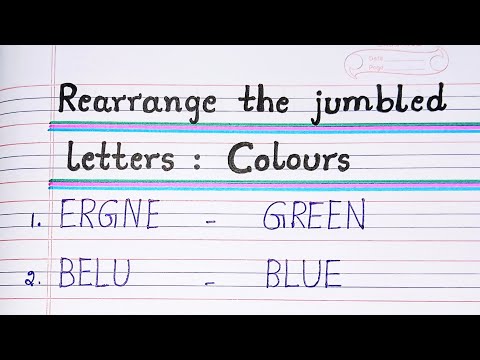 Rearrange the jumbled
letters : Colours
1. ERGNE - GREEN
2. BELU - BLUE